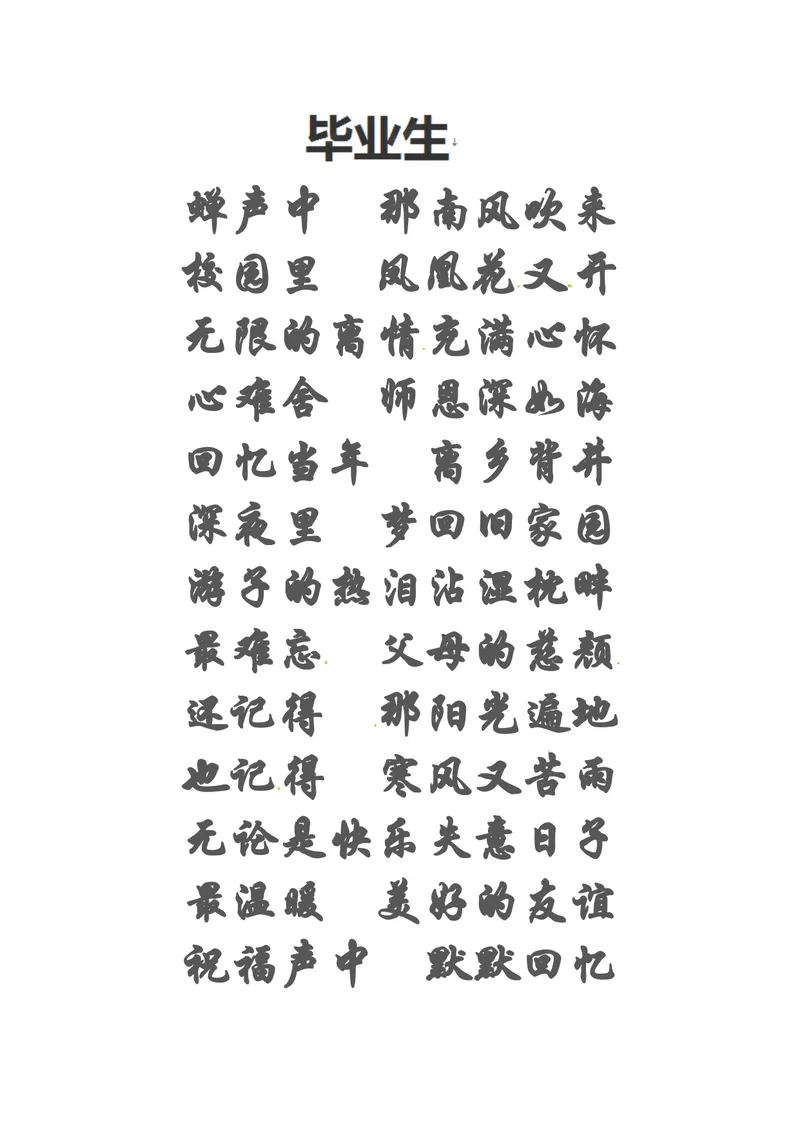 毕业生
蝉声中 那南风吹来
校园里 凤凰花又开
无限的离情充满心怀
心难舍 师恩深如海
回忆当年 离乡背井
深夜里 梦回旧家园
游子的热泪沾湿枕畔
最难忘 父母的慈颜
还记得 那阳光遍地
也记得 寒风又苦雨
无论是快乐失意日子
最温暖 美好的友谊
祝福声中 默默回忆